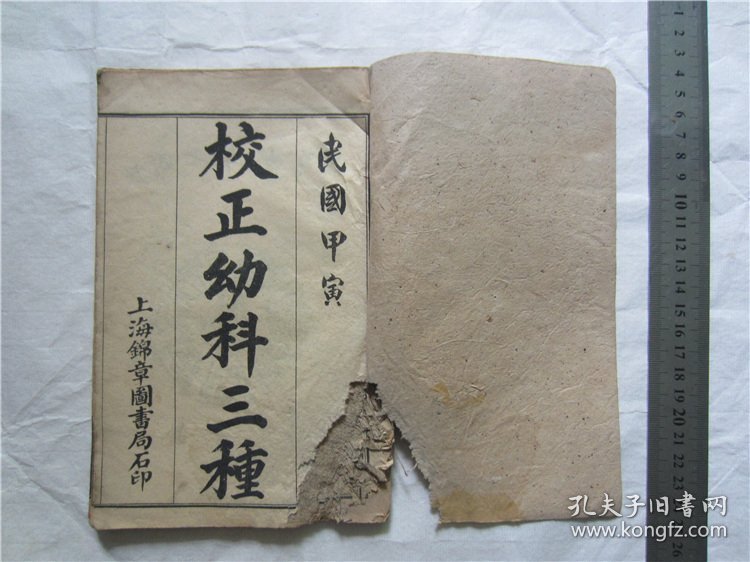 民國甲寅
校正幼科三種
上海錦章圖書局石印
1
2
3
4
5
6
7
8
9
10
11
12
13
14
15
16
17
18
19
20
21
22
23
24
25
26
孔夫子旧书网
www.kongfz.com